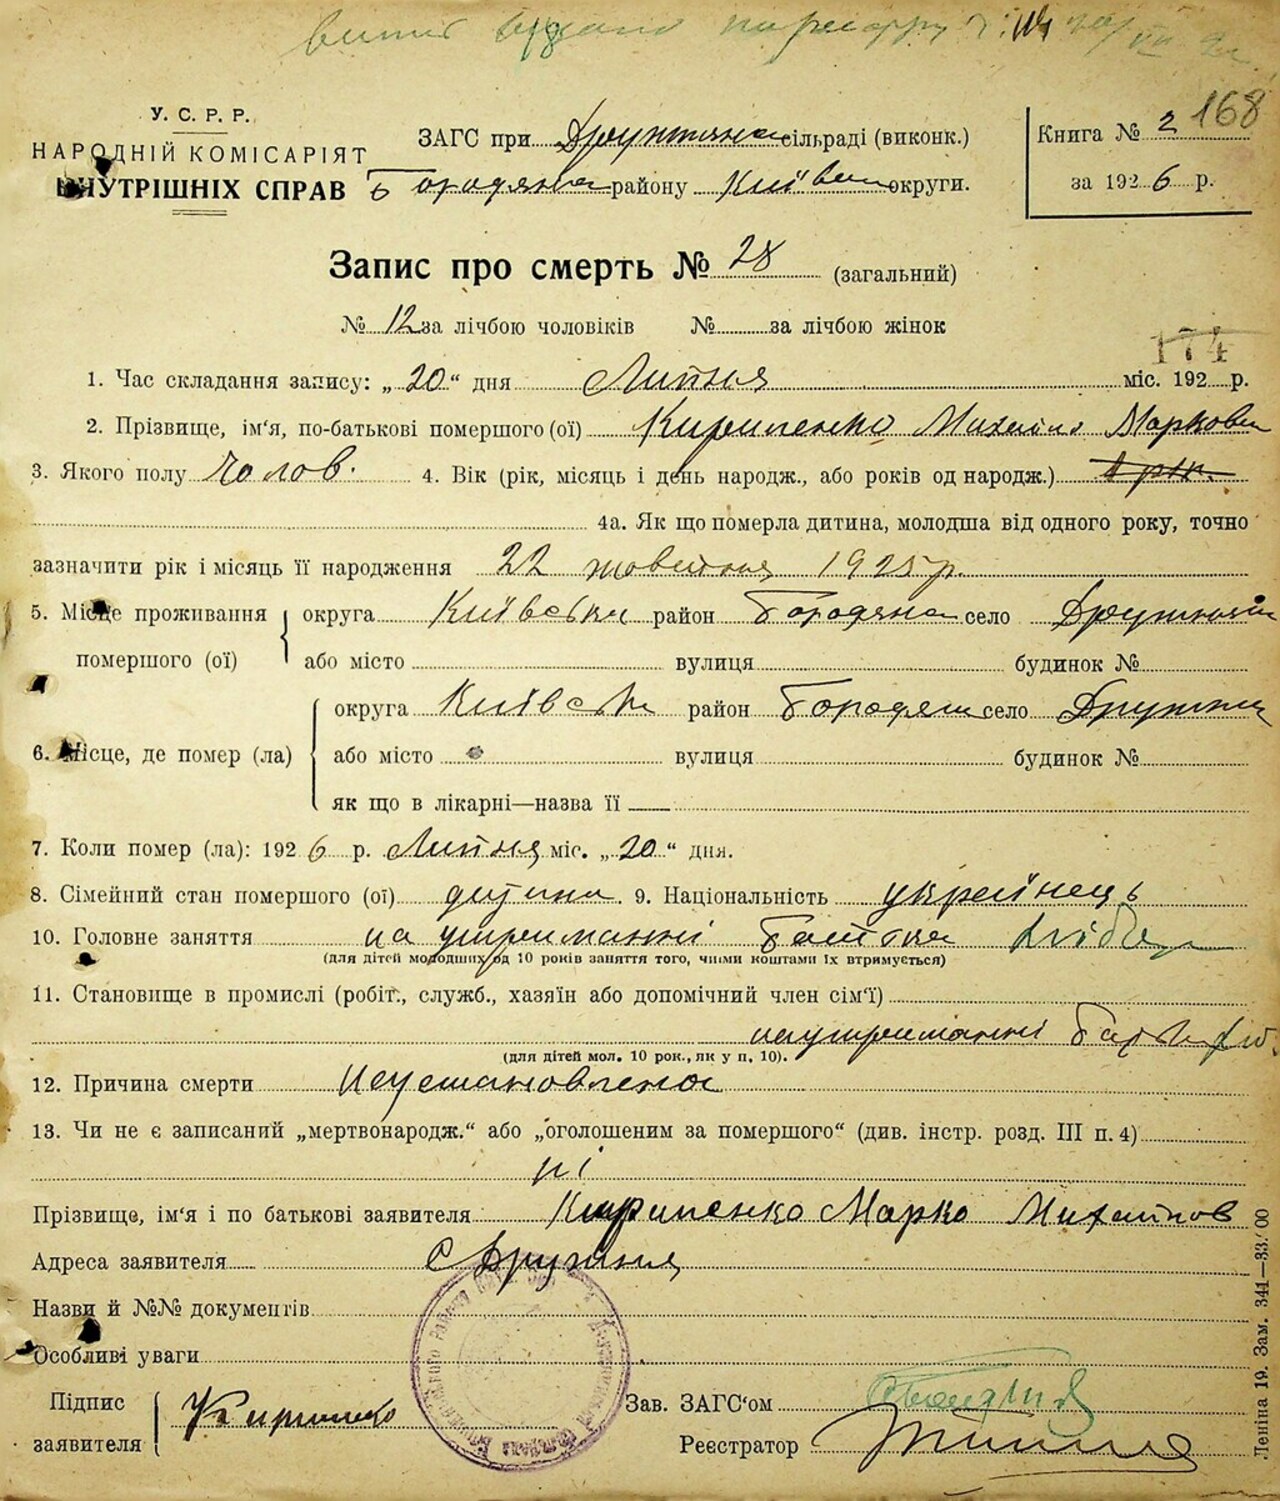 168
У. С. Р. Р.
НАРОДНІЙ КОМІСАРІЯТ
ВНУТРІШНІХ СПРАВ
ЗАГС при сільраді (виконк.)
району округи.
Книга № 2
за 1926 р.
Запис про смерть № 28 (загальний)
№ 12 за лічбою чоловіків № за лічбою жінок
174
1. Час складання запису: „20“ дня Липня міс. 192 р.
2. Прізвище, ім'я, по-батькові помершого (ої) Кириленко Михайло Маркович
3. Якого полу чолов. 4. Вік (рік, місяць і день народж., або років од народж.)
4а. Як що померла дитина, молодша від одного року, точно
зазначити рік і місяць її народження 22 жовтня 1925 р.
5. Місце проживання помершого (ої)
округа Київська район Бородянс село
або місто вулиця будинок №
6. Місце, де помер (ла)
округа Київськ район село
або місто вулиця будинок №
як що в лікарні—назва її
7. Коли помер (ла): 1926 р. Липня міс. „20“ дня.
8. Сімейний стан помершого (ої) дитина 9. Національність украінець
10. Головне заняття на утриманні батька
(для дітей молодших од 10 років заняття того, чиїми коштами їх втримується)
11. Становище в промислі (робіт., служб., хазяїн або допомічний член сім'ї)
на утриманні
(для дітей мол. 10 рок., як у п. 10).
12. Причина смерти Неустановлена
13. Чи не є записаний „мертвонародж.“ або „оголошеним за помершого“ (див. інстр. розд. III п. 4)
ні
Прізвище, ім'я і по батькові заявителя Кириленко Марко Михайлов
Адреса заявителя С Дружня
Назви й №№ документів
Особливі уваги
Підпис заявителя
Зав. ЗАГС'ом
Реєстратор
Леніна 19. Зам. 341—33.000